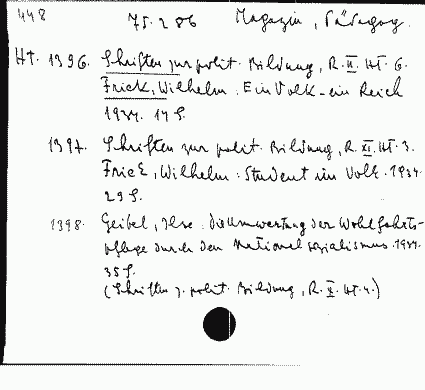 448 75.286 Magazin, Pädagog.
Ht. 1396. Schriften zur polit. Bildung, R. II. Ht. 6.
Frick, Wilhelm. Ein Volk - ein Reich
1934. 14 S.
1397. Schriften zur polit. Bildung, R. XI. Ht. 3.
Frick, Wilhelm. Student im Volk. 1934.
29 S.
1398. Geibel, Ilse. die Umwertung der Wohlfahrts-
pflege durch den Nationalsozialismus. 1934.
35 S.
(Schriften z. polit. Bildung, R. X. Ht. 4.)